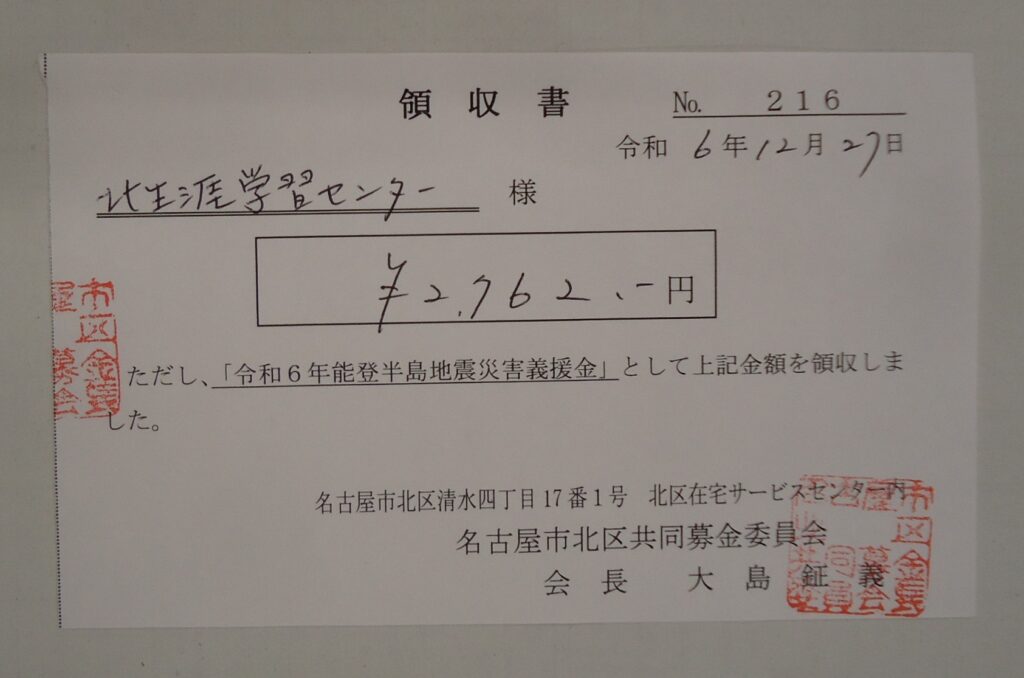 領収書
No. 216
令和 6年12月27日
北生涯学習センター 様
¥2,762.-円
ただし、「令和6年能登半島地震災害義援金」として上記金額を領収しま
した。
名古屋市北区清水四丁目17番1号 北区在宅サービスセンター内
名古屋市北区共同募金委員会
会長 大島 鉦義